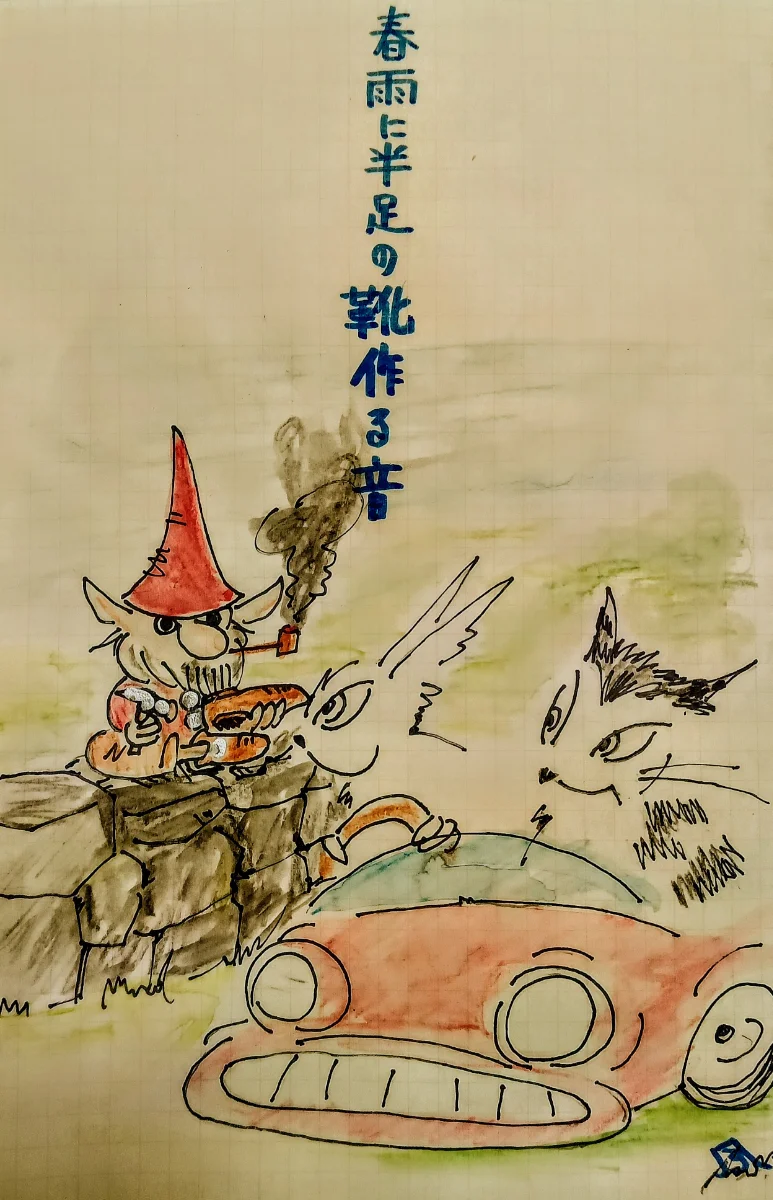 春雨に半足の靴作る音